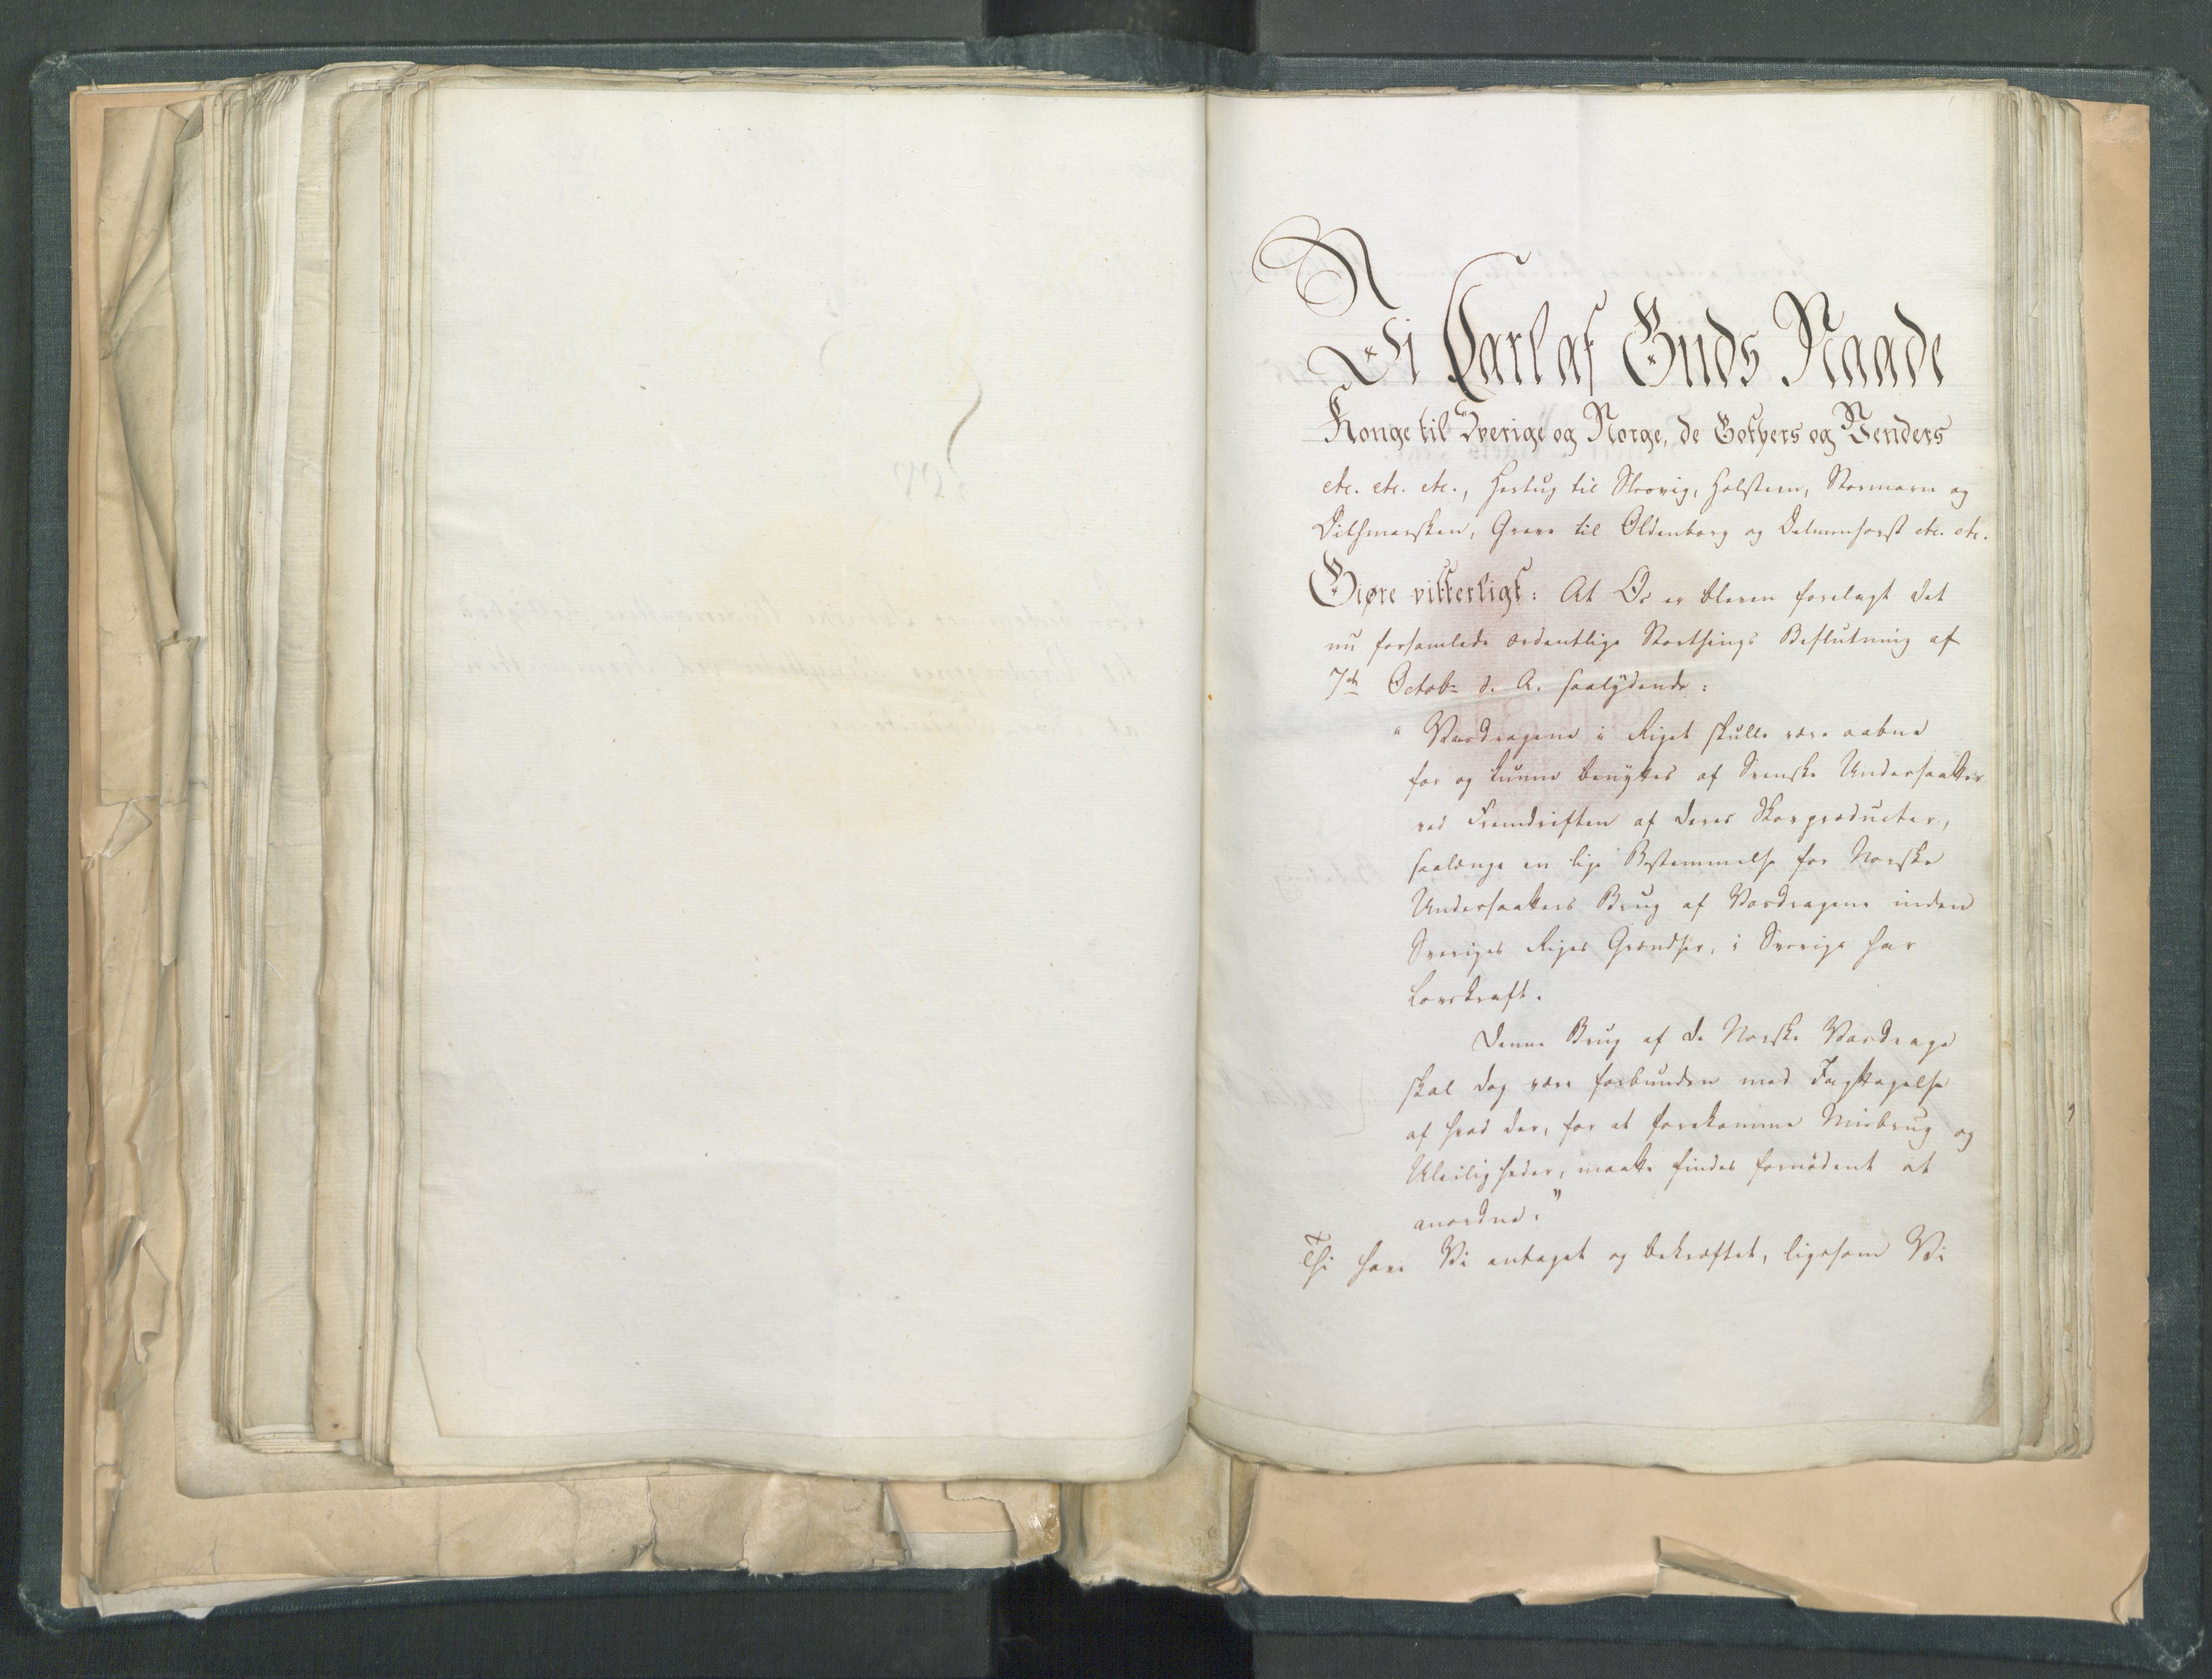 Vi Carl af Guds Naade
Konge til Sverige og Norge, de Gothers og Venders
etc. etc. etc., Hertug til Slesvig, Holsteen, Stormarn og
Dithmarsken, Greve til Oldenborg og Delmenhorst etc. etc.
Giøre vitterligt: At Os er bleven forelagt det
nu forsamlede ordentlige Storthings Beslutning af
7de Octobr d. A. saalydende:
"Vasdragene i Riget skulle være aabne
for og kunne benyttes af Svenske Undersaatter
ved Fremdriften af deres Skovproducter,
saalænge en lige Bestemmelse for Norske
Undersaatters Brug af Vasdragene inden
Sveriges Riges Grændser, i Sverige har
Lovskraft.
Denne Brug af de Norske Vasdrage
skal dog være forbunden med Iagttagelse
af hvad der, for at forekomme Misbrug og
Uleiligheder, maatte findes fornödent at
anordne."
Thi have Vi antaget og bekræftet, ligesom Vi